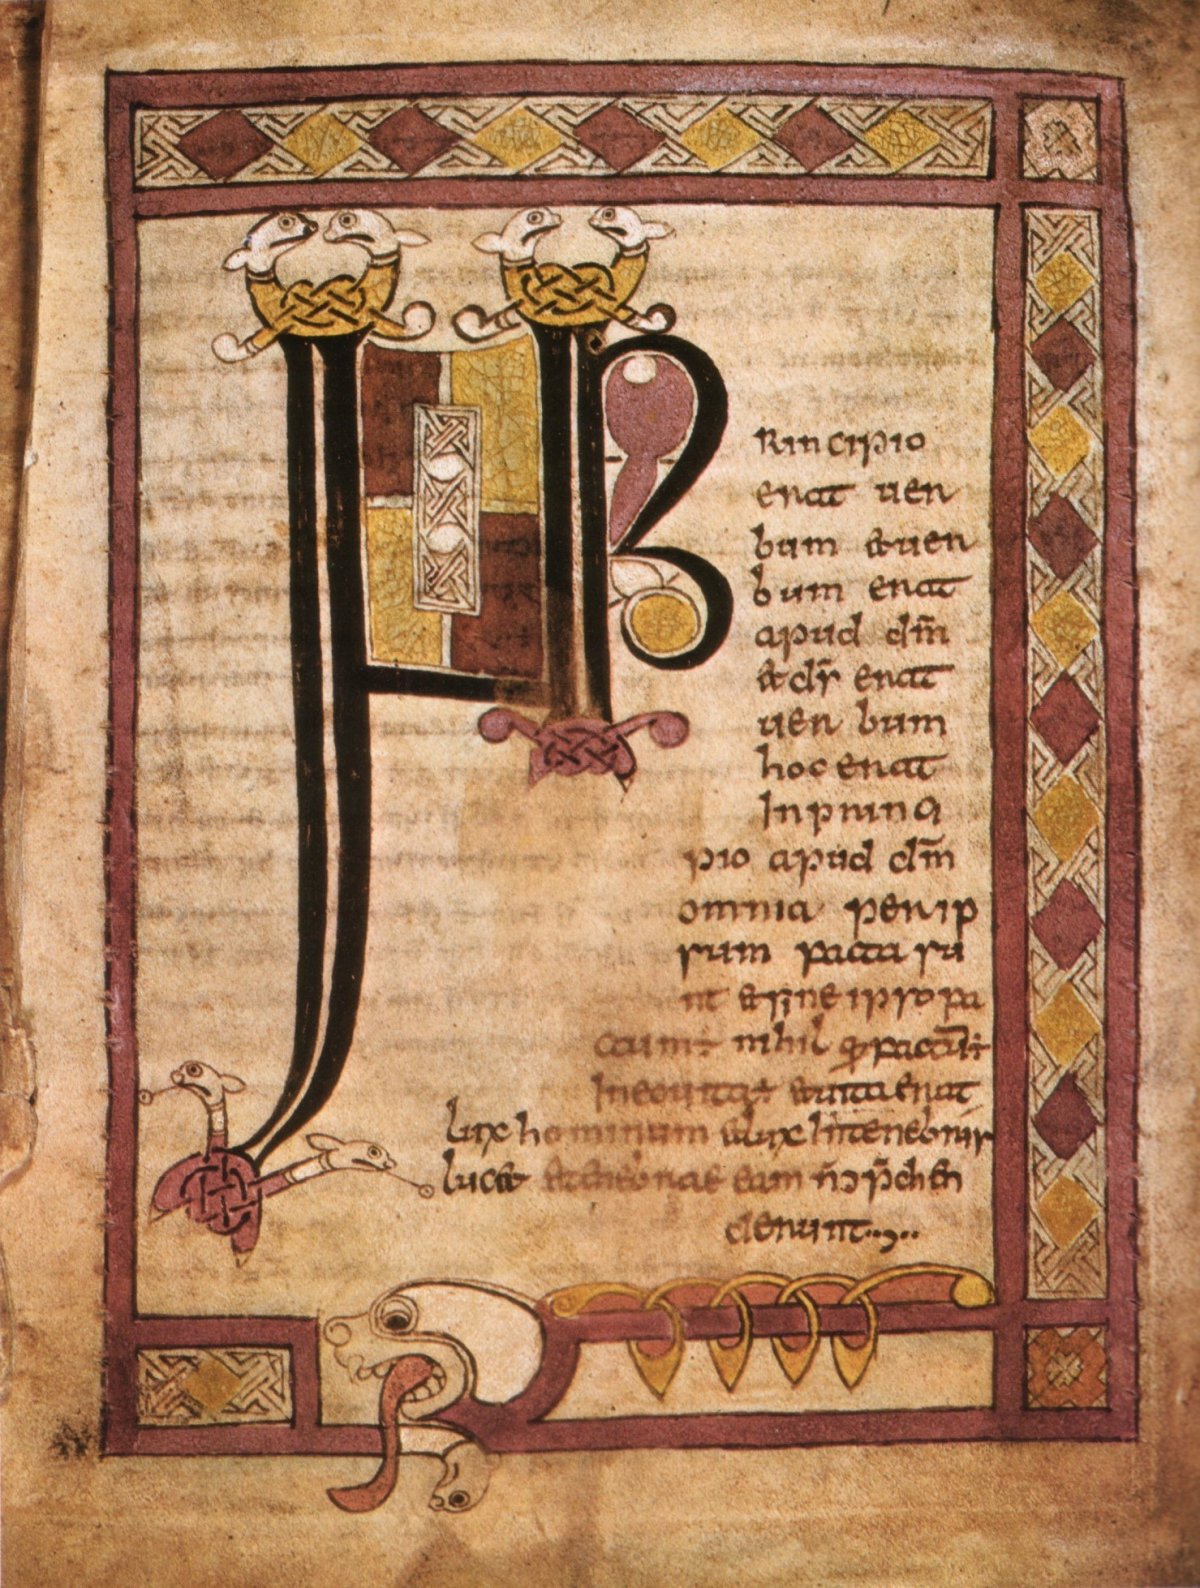 INP
rincipio
erat uer
bum &uer
bum erat
apud dm̄
&ds̄ erat
uer bum
hoc erat
Inprinci
pio apud dm̄
omnia per ip
sum facta su
nt &sine ipso fa
ctum÷ nihil qđ factum÷
Ineouita÷ &uita erat
lux hominum &lux Intenebris
luc& &tenebrae eam n̄ɔp̄chen
derunt..,..